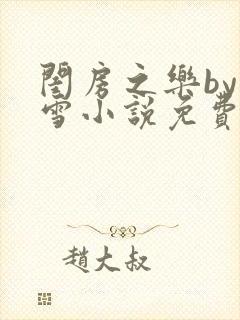 閨房之樂by
雪小說免費
趙大叔